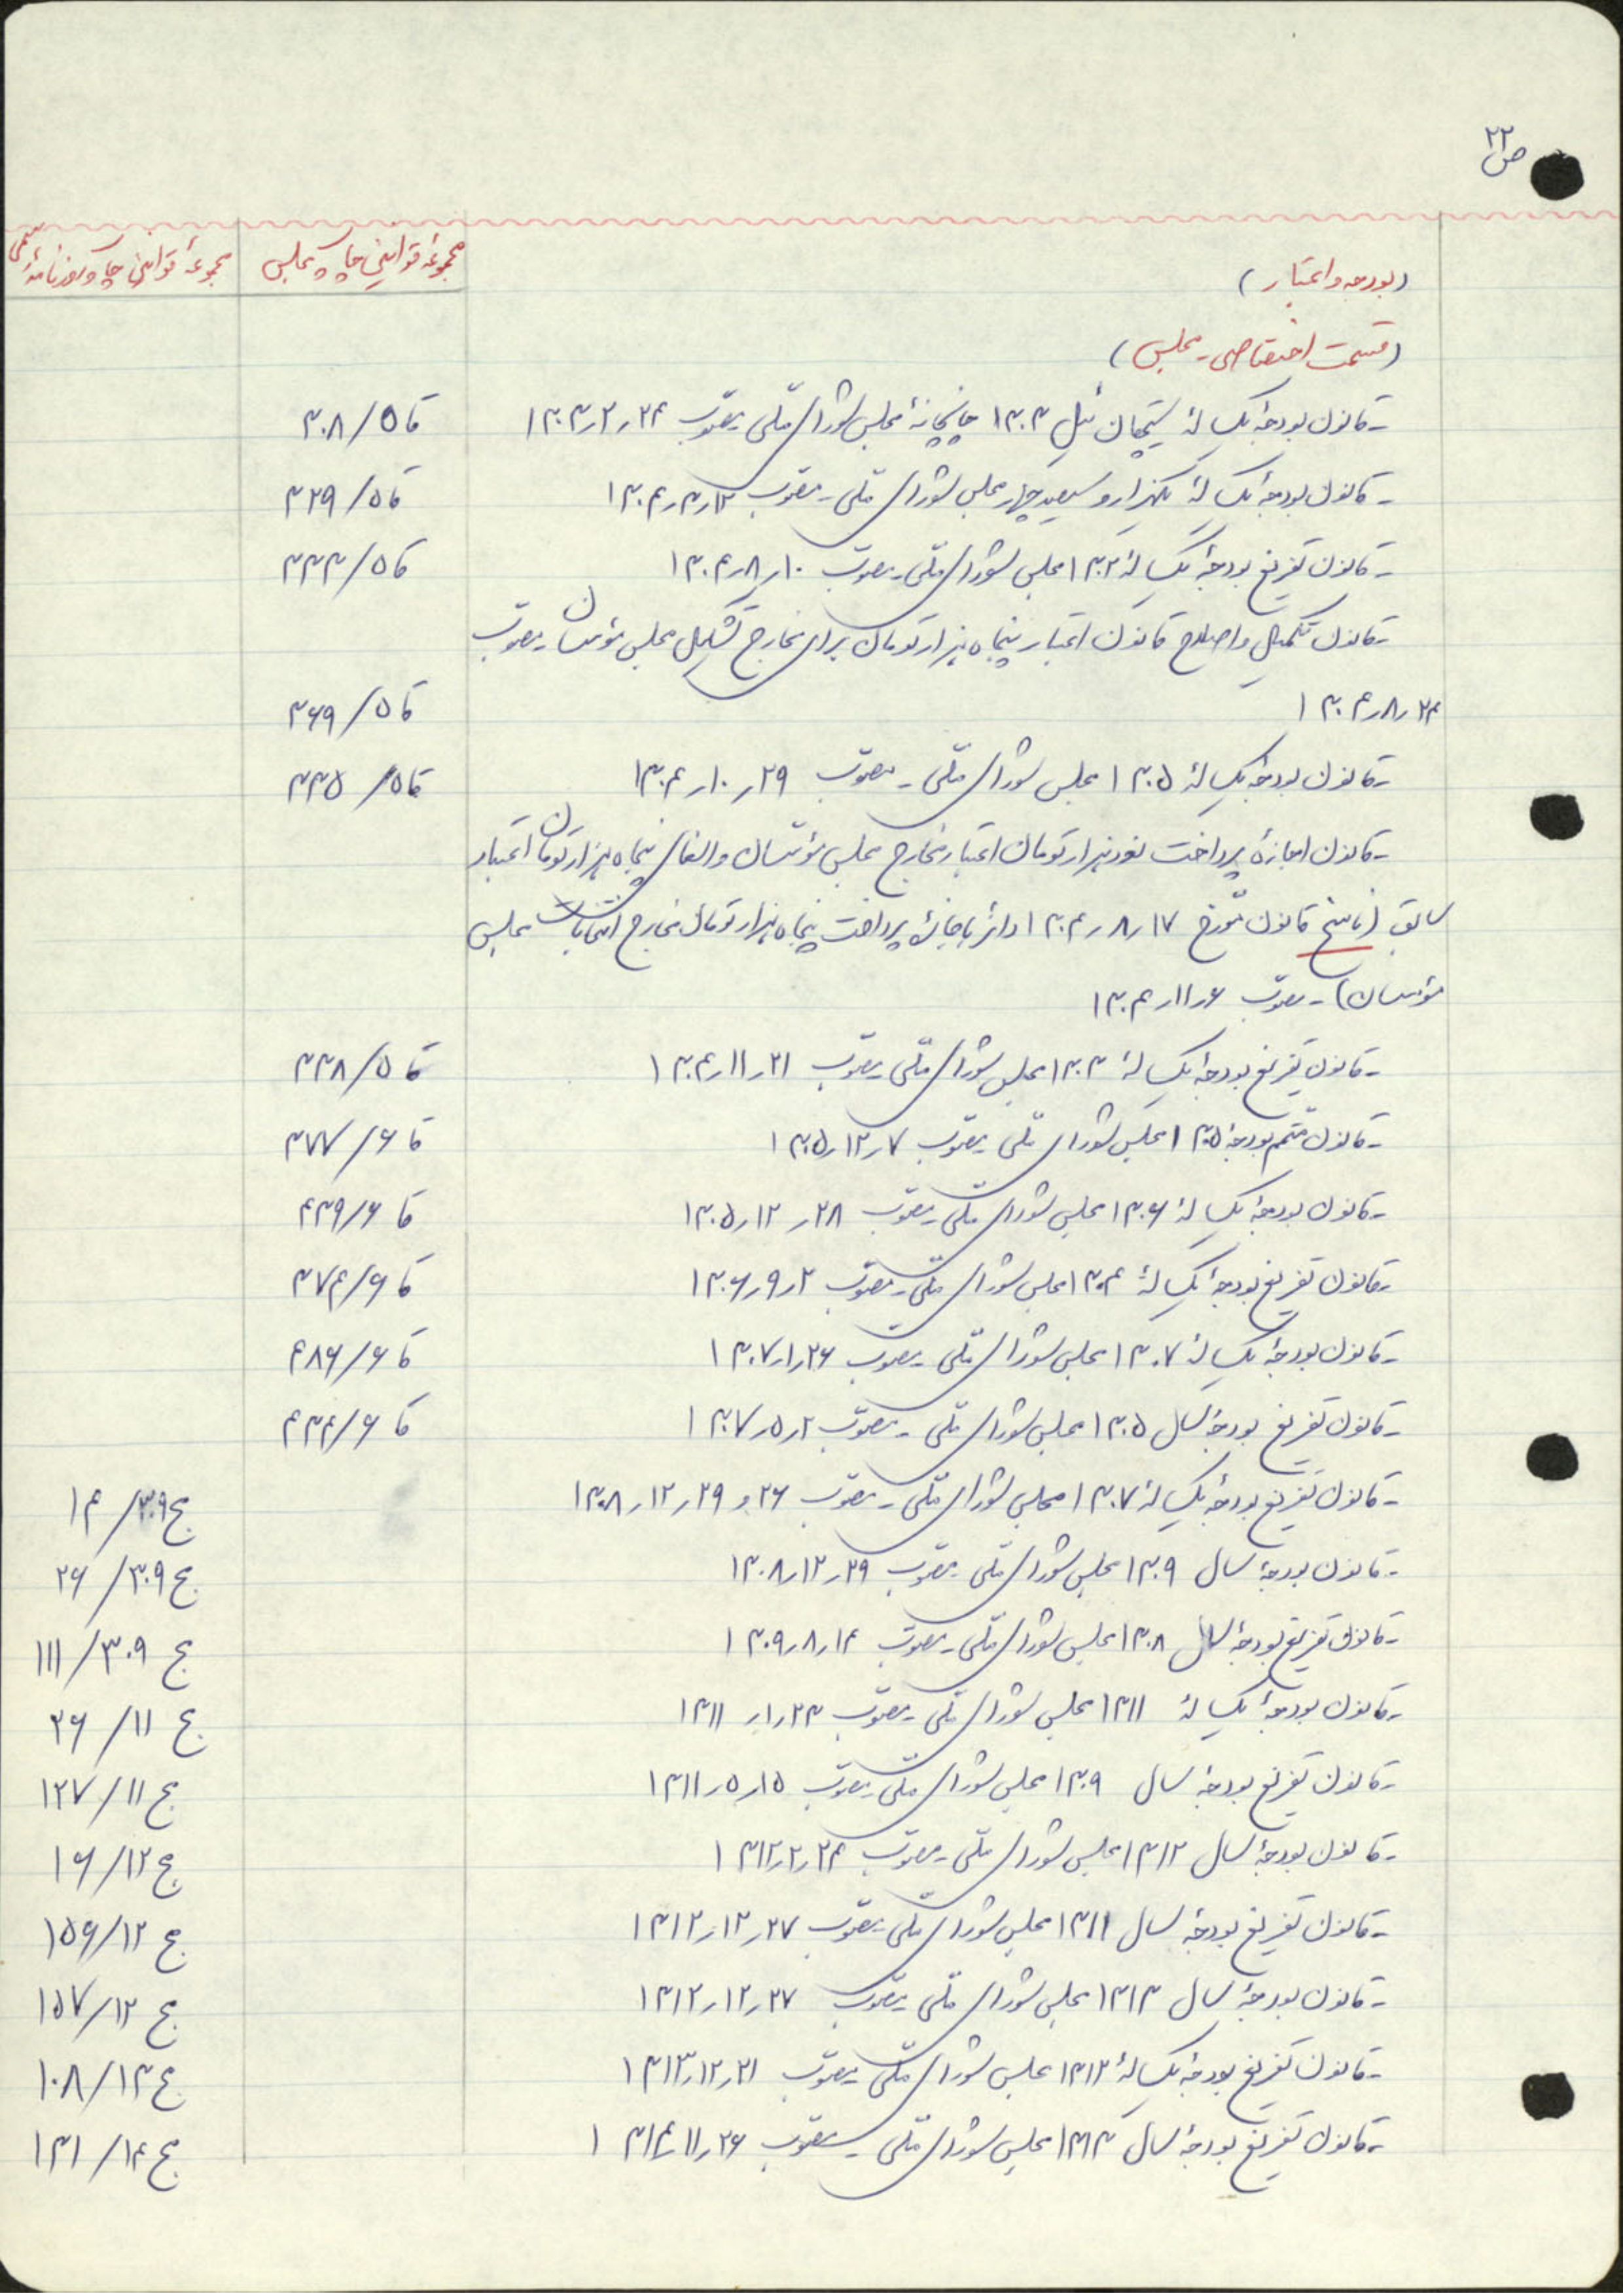 ص ۲۲
مجموعهٔ قوانین چاپ مجلس
مجموعهٔ قوانین چاپ روزنامهٔ رسمی
(بودجه و اعتبار)
(قسمت اختصاصی - مجلس)
- قانون بودجهٔ یکسالهٔ سیچقان ئیل ۱۳۰۳ چاپخانهٔ مجلس شورای ملّی - مصوّب ۲۴ر۲ر۱۳۰۳ قا ۵/ ۳۰۸
- قانون بودجهٔ یکسالهٔ یکهزار و سیصد چهار مجلس شورای ملّی - مصوّب ۱۲ر۳ر۱۳۰۴ قا ۵/ ۳۲۹
- قانون تفریغ بودجهٔ یکسالهٔ ۱۳۰۲ مجلس شورای ملّی - مصوّب ۱۰ر۸ر۱۳۰۴ قا ۵/ ۳۳۳
- قانون تکمیل و اصلاح قانون اعتبار پنجاه هزار تومان برای مخارج تشکیل مجلس مؤسسان - مصوّب
۲۴ر۸ر۱۳۰۴ قا ۵/ ۳۶۹
- قانون بودجهٔ یکسالهٔ ۱۳۰۵ مجلس شورای ملّی - مصوّب ۲۹ر۱۰ر۱۳۰۴ قا ۵/ ۳۳۵
- قانون اجازهٔ پرداخت نود هزار تومان اعتبار مخارج مجلس مؤسّسان و الغای پنجاه هزار تومان اعتبار
سابق (ناسخ قانون مورّخ ۱۷ر۸ر۱۳۰۴ دائر باجازهٔ پرداخت پنجاه هزار تومان مخارج انتخابات مجلس
مؤسسان) - مصوّب ۶ر۱۱ر۱۳۰۴
- قانون تفریغ بودجهٔ یکسالهٔ ۱۳۰۳ مجلس شورای ملّی - مصوّب ۲۱ر۱۱ر۱۳۰۴ قا ۵/ ۳۳۸
- قانون متمم بودجهٔ ۱۳۰۵ مجلس شورای ملّی - مصوّب ۷ر۱۲ر۱۳۰۵ قا ۶/ ۳۷۷
- قانون بودجهٔ یکسالهٔ ۱۳۰۶ مجلس شورای ملّی - مصوّب ۲۸ر۱۲ر۱۳۰۵ قا ۶/ ۴۳۹
- قانون تفریغ بودجهٔ یکسالهٔ ۱۳۰۴ مجلس شورای ملّی - مصوّب ۲ر۹ر۱۳۰۶ قا ۶/ ۳۷۴
- قانون بودجهٔ یکسالهٔ ۱۳۰۷ مجلس شورای ملّی - مصوّب ۲۶ر۱ر۱۳۰۷ قا ۶/ ۴۸۶
- قانون تفریغ بودجهٔ سال ۱۳۰۵ مجلس شورای ملّی - مصوّب ۲ر۵ر۱۳۰۷ قا ۶/ ۴۳۴
- قانون تفریغ بودجهٔ یکسالهٔ ۱۳۰۷ مجلس شورای ملّی - مصوّب ۲۶ و ۲۹ر۱۲ر۱۳۰۸ ج ۳۰۹/ ۱۴
- قانون بودجهٔ سال ۱۳۰۹ مجلس شورای ملّی - مصوّب ۲۹ر۱۲ر۱۳۰۸ ج ۳۰۹/ ۲۶
- قانون تفریغ بودجهٔ سال ۱۳۰۸ مجلس شورای ملّی - مصوّب ۱۴ر۸ر۱۳۰۹ ج ۳۰۹/ ۱۱۱
- قانون بودجهٔ یکسالهٔ ۱۳۱۱ مجلس شورای ملّی - مصوّب ۲۳ر۱ر۱۳۱۱ ج ۱۱/ ۲۶
- قانون تفریغ بودجهٔ سال ۱۳۰۹ مجلس شورای ملّی - مصوّب ۱۵ر۵ر۱۳۱۱ ج ۱۱/ ۱۲۷
- قانون بودجهٔ سال ۱۳۱۲ مجلس شورای ملّی - مصوّب ۲۴ر۲ر۱۳۱۲ ج ۱۲/ ۱۶
- قانون تفریغ بودجهٔ سال ۱۳۱۱ مجلس شورای ملّی - مصوّب ۲۷ر۱۲ر۱۳۱۲ ج ۱۲/ ۱۵۶
- قانون بودجهٔ سال ۱۳۱۳ مجلس شورای ملّی - مصوّب ۲۷ر۱۲ر۱۳۱۲ ج ۱۲/ ۱۵۷
- قانون تفریغ بودجهٔ یکسالهٔ ۱۳۱۲ مجلس شورای ملّی - مصوّب ۲۱ر۱۲ر۱۳۱۳ ج ۱۳/ ۱۰۸
- قانون تفریغ بودجهٔ سال ۱۳۱۳ مجلس شورای ملّی - مصوّب ۲۶ر۱۱ر۱۳۱۴ ج ۱۴/ ۱۳۱